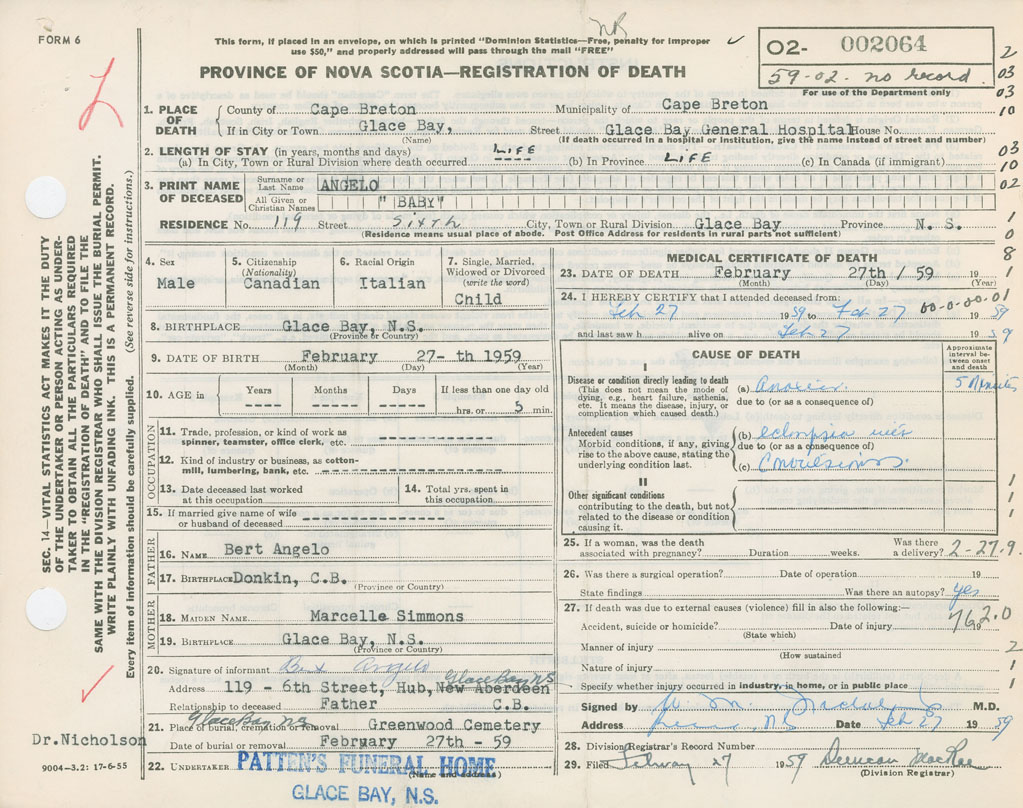 NR
FORM 6
This form, if placed in an envelope, on which is printed "Dominion Statistics—Free, penalty for improper
use $50," and properly addressed will pass through the mail "FREE"
02- 002064
59-02. no record.
For use of the Department only
PROVINCE OF NOVA SCOTIA—REGISTRATION OF DEATH
2
03
03
10
03
10
02
1
0
8
1
1. PLACE OF DEATH
County of Cape Breton Municipality of Cape Breton
If in City or Town Glace Bay, Street Glace Bay General Hospital House No.
(Name) (If death occurred in a hospital or institution, give the name instead of street and number)
2. LENGTH OF STAY (in years, months and days)
(a) In City, Town or Rural Division where death occurred LIFE ---- (b) In Province LIFE (c) In Canada (if immigrant)
3. PRINT NAME OF DECEASED
Surname or Last Name ANGELO
All Given or Christian Names "BABY"
RESIDENCE No. 119 Street Sixth City, Town or Rural Division Glace Bay Province N. S.
(Residence means usual place of abode. Post Office Address for residents in rural parts not sufficient)
4. Sex
Male
5. Citizenship
(Nationality)
Canadian
6. Racial Origin
Italian
7. Single, Married, Widowed or Divorced
(write the word)
Child
8. BIRTHPLACE Glace Bay, N.S.
(Province or Country)
9. DATE OF BIRTH February 27- th 1959
(Month) (Day) (Year)
10. AGE in Years ---- Months ---- Days ---- If less than one day old
hrs. or 5 min.
OCCUPATION
11. Trade, profession, or kind of work as
spinner, teamster, office clerk, etc. ----------
12. Kind of industry or business, as cotton-
mill, lumbering, bank, etc. ----------
13. Date deceased last worked
at this occupation
14. Total yrs. spent in
this occupation
15. If married give name of wife
or husband of deceased ----------------
FATHER
16. NAME Bert Angelo
17. BIRTHPLACE Donkin, C.B.
(Province or Country)
MOTHER
18. MAIDEN NAME Marcelle Simmons
19. BIRTHPLACE Glace Bay, N.S.
(Province or Country)
20. Signature of informant Angelo
Glace Bay NS
Address 119 - 6th Street, Hub, New Aberdeen
Relationship to deceased Father C.B.
Glace Bay NS
21. Place of burial, cremation or removal Greenwood Cemetery
Date of burial or removal February 27th - 59
22. UNDERTAKER PATTEN'S FUNERAL HOME
(Name and address)
GLACE BAY, N.S.
MEDICAL CERTIFICATE OF DEATH
23. DATE OF DEATH February 27th / 59 19
(Month) (Day) (Year)
24. I HEREBY CERTIFY that I attended deceased from: 00-0-00-01
Feb 27 1959 to Feb 27 1959
and last saw h alive on Feb 27 1959
CAUSE OF DEATH
Approximate interval between onset and death
I
Disease or condition directly leading to death
(This does not mean the mode of
dying, e.g., heart failure, asthenia,
etc. It means the disease, injury, or
complication which caused death.)
(a) Anoxia. 5 Minutes
due to (or as a consequence of)
Antecedent causes
Morbid conditions, if any, giving
rise to the above cause, stating the
underlying condition last.
(b) eclampsia
due to (or as a consequence of)
(c) Convulsions.
II
Other significant conditions
contributing to the death, but not
related to the disease or condition
causing it.
1
1
1
25. If a woman, was the death
associated with pregnancy? Duration weeks. Was there
a delivery? 2-27.9
26. Was there a surgical operation? Date of operation 19
State findings Was there an autopsy? yes
27. If death was due to external causes (violence) fill in also the following:—
Accident, suicide or homicide? Date of injury 19
762.0
(State which)
Manner of injury 2
(How sustained
Nature of injury 1
Specify whether injury occurred in industry, in home, or in public place 1
Signed by M.D.
Address NS Date Feb 27 1959
28. Division Registrar's Record Number
29. Filed February 27 1959 Duncan MacRae
(Division Registrar)
SEC. 14—VITAL STATISTICS ACT MAKES IT THE DUTY
OF THE UNDERTAKER OR PERSON ACTING AS UNDER-
TAKER TO OBTAIN ALL THE PARTICULARS REQUIRED
IN THE "REGISTRATION OF DEATH" AND TO FILE THE
SAME WITH THE DIVISION REGISTRAR WHO SHALL ISSUE THE BURIAL PERMIT.
WRITE PLAINLY WITH UNFADING INK. THIS IS A PERMANENT RECORD.
Every item of information should be carefully supplied. (See reverse side for instructions.)
Dr. Nicholson
9004-3.2: 17-6-55